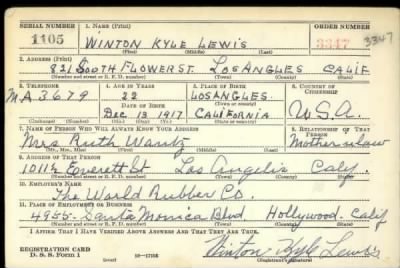 SERIAL NUMBER 1. NAME (Print) ORDER NUMBER
1105 WINTON KYLE LEWIS 3347 3347
(First) (Middle) (Last)
2. ADDRESS (Print)
921 SOUTH FLOWER ST. LOS ANGLES CALIF
(Number and street or R. F. D. number) (Town) (County) (State)
3. TELEPHONE 4. AGE IN YEARS 5. PLACE OF BIRTH 6. COUNTRY OF CITIZENSHIP
M.A. 3679 22 LOS ANGLES
DATE OF BIRTH (Town or county)
DEC 13 1917 CALIFORNIA U.S.A.
(Exchange) (Number) (Mo.) (Day) (Yr.) (State or country)
7. NAME OF PERSON WHO WILL ALWAYS KNOW YOUR ADDRESS 8. RELATIONSHIP OF THAT PERSON
Mrs Ruth Mother in law
(Mr., Mrs., Miss) (First) (Middle) (Last)
9. ADDRESS OF THAT PERSON
1011½ Everett St Los Angelis Calf.
(Number and street or R. F. D. number) (Town) (County) (State)
10. EMPLOYER'S NAME
The World Rubber Co.
11. PLACE OF EMPLOYMENT OR BUSINESS
4955- Santa Monica Blvd. Hollywood. Calif
(Number and street or R. F. D. number) (Town) (County) (State)
I AFFIRM THAT I HAVE VERIFIED ABOVE ANSWERS AND THAT THEY ARE TRUE.
REGISTRATION CARD
D. S. S. Form 1 (over) Winton Kyle Lewis
(Registrant's signature)